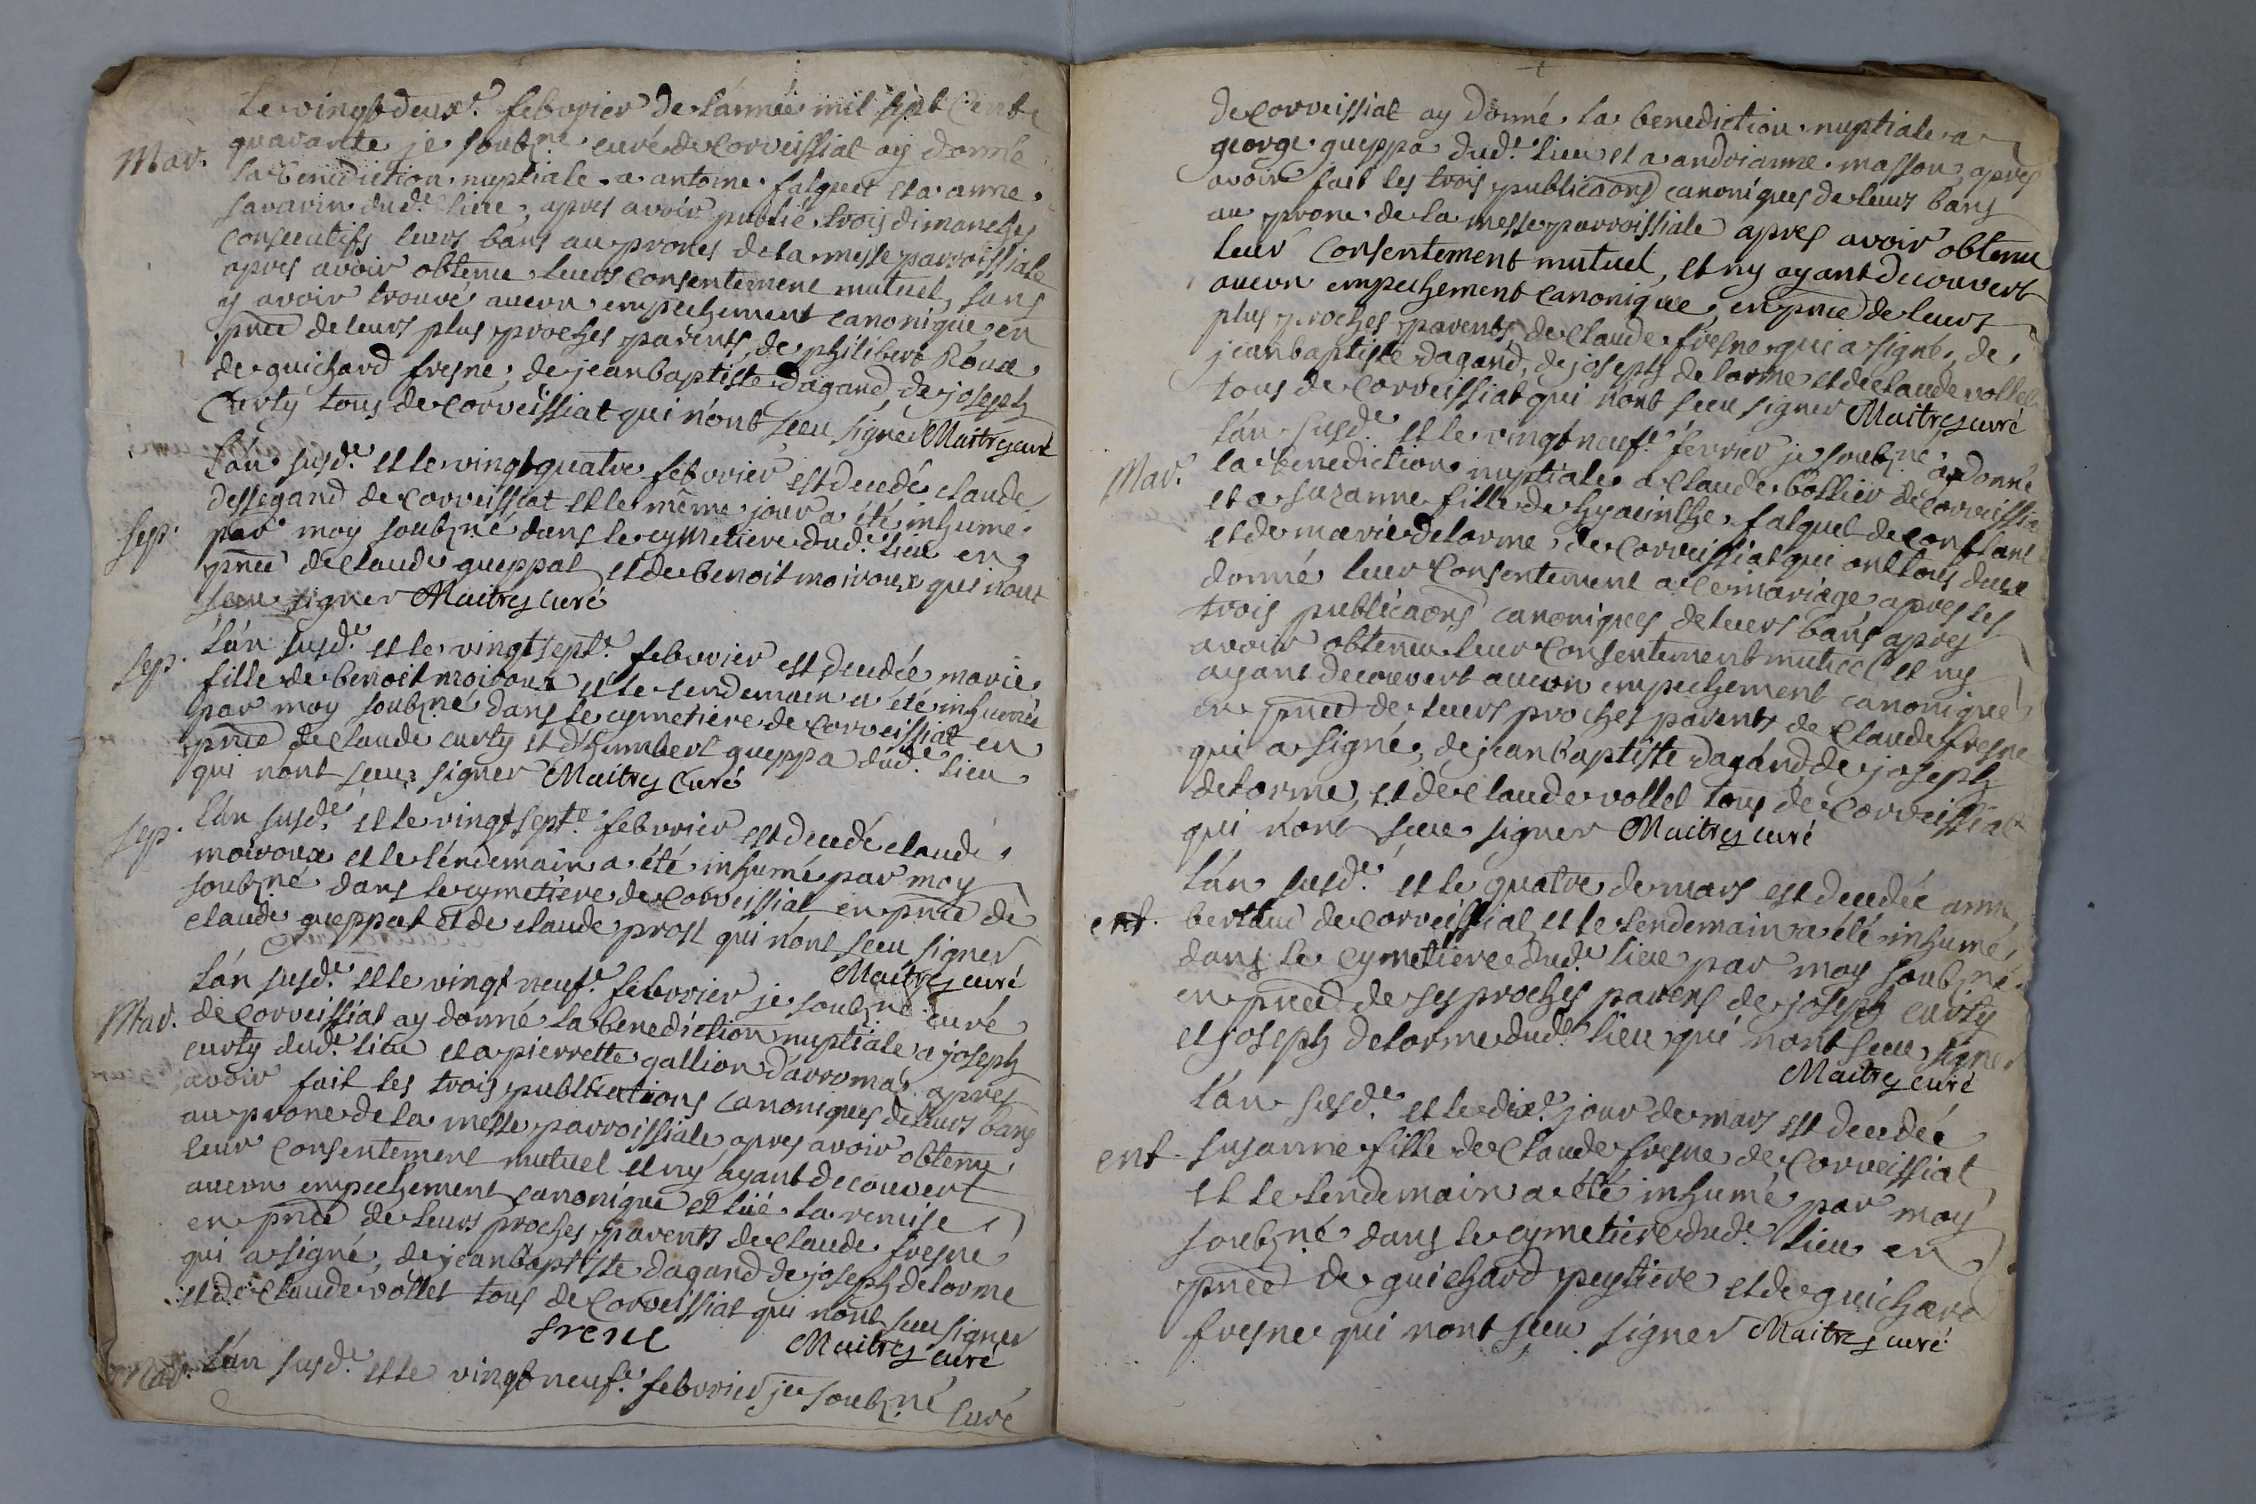 Le vingt deuxe. febvrier de l'année mil sept cent
Mar. quarante je soubzne. curé de Corveissiat ay donné
la benediction nuptiale a antoine falquet et a anne
savarin dude. lieu, apres avoir publié trois dimanches
consecutifs leurs bans au prones de la messe parroissiale
apres avoir obtenu leurs consentement mutuel, sans
y avoir trouvé aucun empechement canonique, en
pnce de leurs plus proches parents, de philibert Roux
de guichard fresne, de jean baptiste dagand, de joseph
Curty tous de Corveissiat qui n'ont sceu signer Maitrez curé
L'an susde. et le vingt quatre febvrier est decedé claude
dessegand de Corveissiat et le même jour a été inhumé
sep. par moy soubzné dans le cymetiere dude. lieu en
pnce de claude gueppat et de benoit moiroux qui n'ont
sceu signer Maitrez curé
L'an susde. et le vingt septe. febvrier est decedée marie
sep. fille de benoit moiroux et le lendemain a été inhumée
par moy soubzné dans le cymetiere de Corveissiat en
pnce de claude curty et d'humbert gueppa dude. lieu
qui nont sceu signer Maitrez Curé
L'an susde. et le vingt septe. febvrier est decedé claude
sep. moiroux et le lendemain a été inhumé par moy
soubzné dans le cymetiere de Corveissiat en pnce de
claude gueppat et de claude prost qui n'ont sceu signer
Maitrez curé
L'an susde. et le vingt neufe. febvrier je soubzné curé
Mar. de Corveissiat ay donné la benediction nuptiale a joseph
curty dude. lieu et a pierrette gallion d'arromas apres
avoir fait les trois publications canoniques de leurs bans
au prone de la messe parroissiale, apres avoir obtenu
leur consentement mutuel et ny ayant decouvert
aucun empechement canonique et lüe la remise
en pnce de leurs proches parents de claude fresne
qui a signé, de jean baptiste dagand de joseph delorme
et de claude vollet tous de Corveissiat qui nont sceu signer
frene Maitrez curé
Mar. L'an susde. et le vingt neufe. febvrier je soubzné curé
de Corveissiat ay donné la benediction nuptiale a
george gueppa dude. lieu et a andrianne masson apres
avoir fait les trois publicaons canoniques de leurs bans
au prone de la messe parroissiale apres avoir obtenu
leur consentement mutuel, et ny ayant decouvert
aucun empechement canonique, en pnce de leurs
plus proches parents, de claude fresne qui a signé, de
jean baptiste dagand, de joseph delorme et de claude vollet
tous de Corveissiat qui n'ont sceu signer Maitrez curé
L'an susde. et le vingt neufe. fevrier je soubzné ay donné
Mar. la benediction nuptiale a claude bollier de Corveissia
et a suzanne fille de hyacinthe falquet de
et de marie delorme, de Corveissiat qui ont tous deux
donné leur consentement a ce mariage apres les
trois publicaons canoniques de leurs bans apres
avoir obtenu leur consentement mutuel et ny
ayant decouvert aucun empechement canonique
en pnce de leurs proches parents de claude fresne
qui a signé, de jean baptiste dagand, de joseph
delorme, et de claude vollet tous de Corveissiat
qui n'ont sceu signer Maitrez curé
L'an susde. et le quatre de mars est decedée anne
ent. bertaud de Corveissiat et le lendemain a été inhumé
dans le cymetiere dude. lieu par moy soubzné
en pnce de ses proches parens de joseph curty
et joseph delorme dude. lieu qui nont sceu signer
Maitrez curé
L'an susde. et le dixe. jour de mars est decedée
ent. susanne fille de claude fresne de Corveissiat
et le lendemain a été inhumé par moy
soubzné dans le cymetiere dude. lieu en
pnce de guichard peytiere et de guichard
fresne qui nont sceu signer Maitrez curé